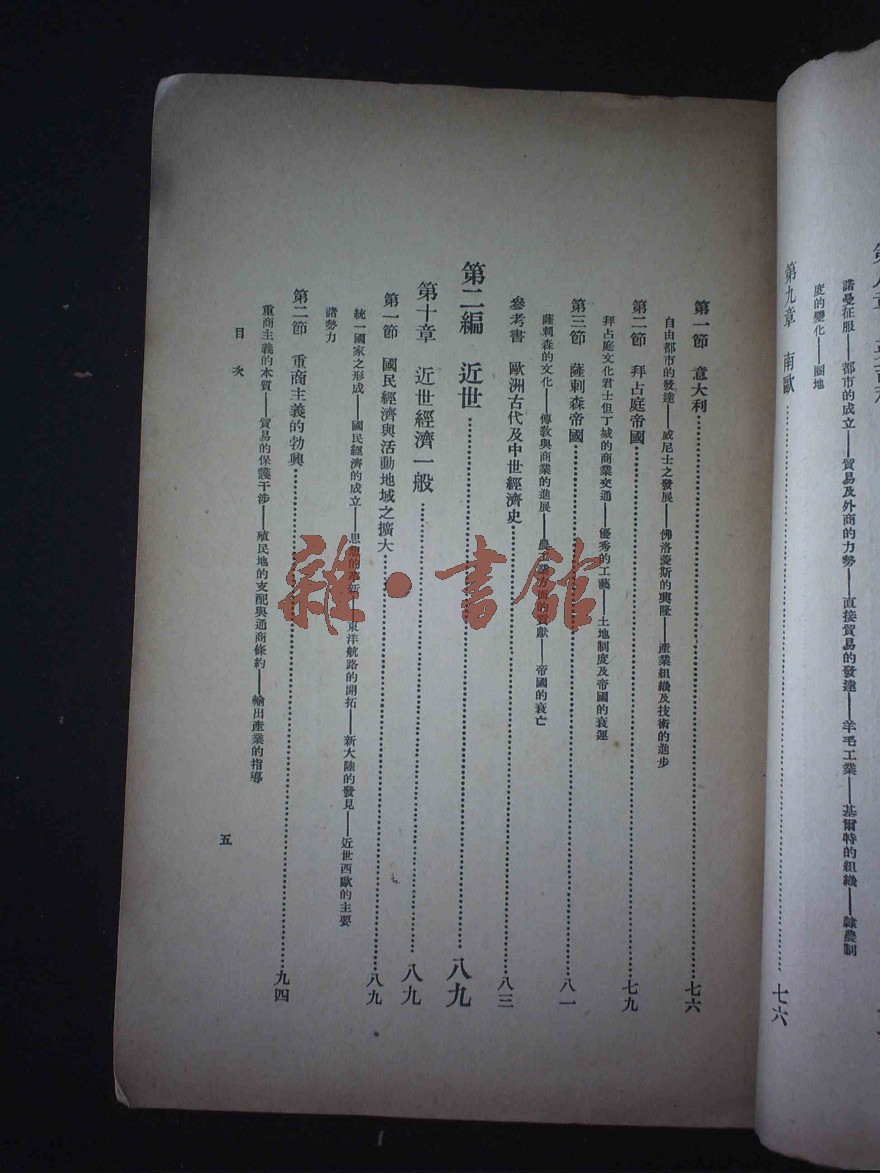 諾曼征服——都市的成立——貿易及外商的力勢——直接貿易的發達——羊毛工業——基爾特的組織——隸農制
度的變化——圈地
第九章　南歐……七六
第一節　意大利……七六
自由都市的發達——威尼士之發展——佛洛蔆斯的興隆——產業組織及技術的進步
第二節　拜占庭帝國……七九
拜占庭文化君士但丁城的商業交通——優秀的工藝——土地制度及帝國的衰運
第三節　薩刺森帝國……八一
薩刺森的文化——傳敎與商業的進展——農工業方面的貢獻——帝國的衰亡
參考書　歐洲古代及中世經濟史……八三
第二編　近世……八九
第十章　近世經濟一般……八九
第一節　國民經濟與活動地域之擴大……八九
統一國家之形成——國民經濟的成立——思想的革新——東洋航路的開拓——新大陸的發見——近世西歐的主要
諸勢力
第二節　重商主義的勃興……九四
重商主義的本質——貿易的保護干涉——殖民地的支配與通商條約——輸出產業的指導
目次
五
雜·書館